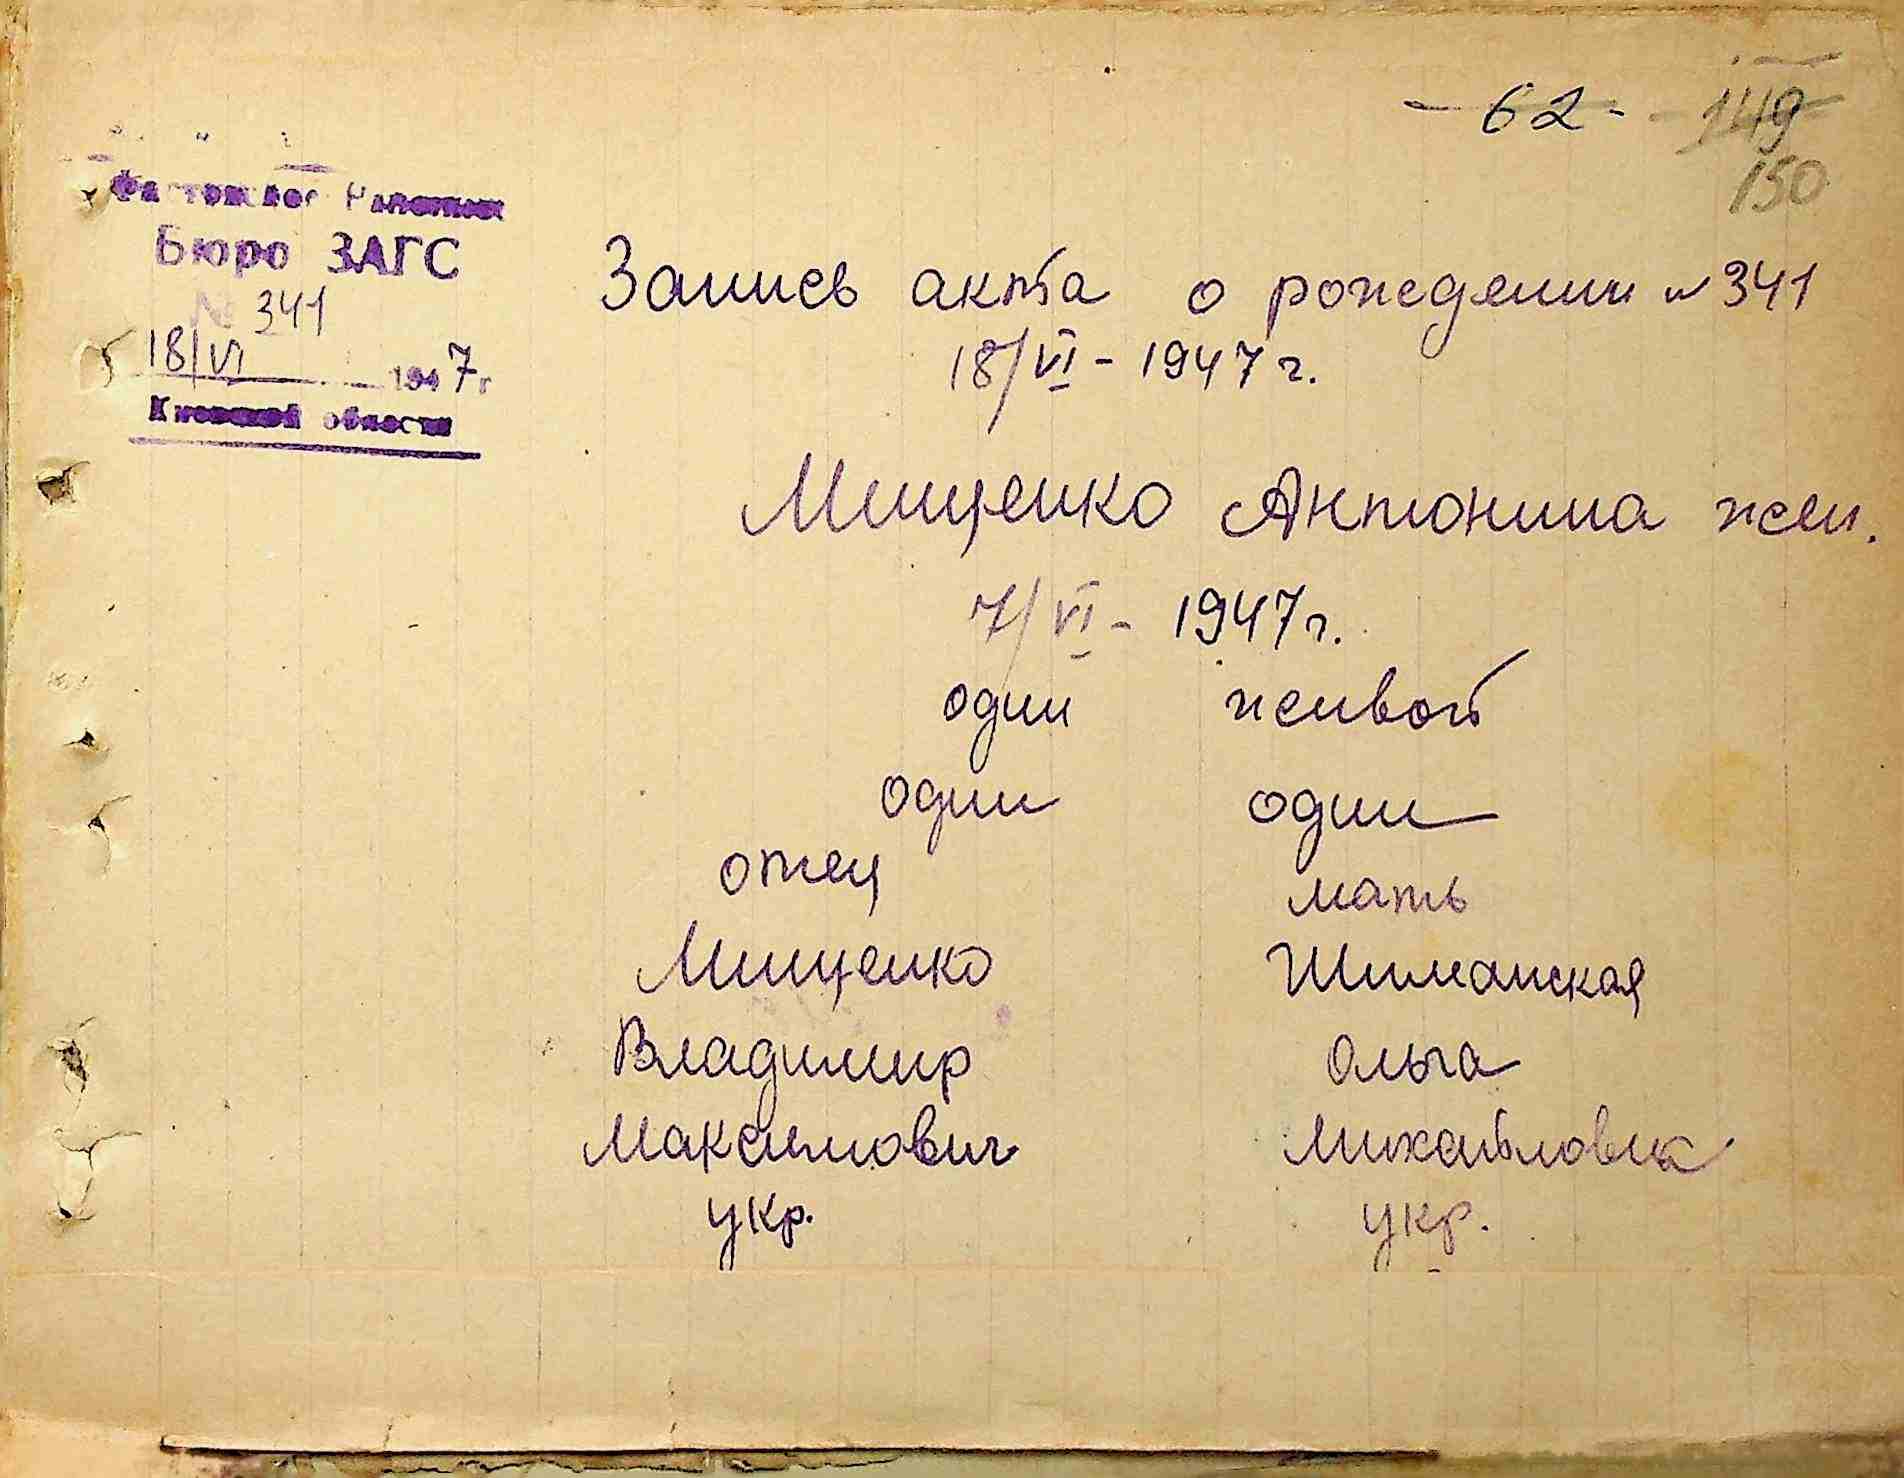 - 62 - - 149 -
150
Фастовское Районное
Бюро ЗАГС
№ 341
18/VI 1947г.
Киевской области
Запись акта о рождении № 341
18/VI - 1947 г.
Мищенко Антонина жен.
7/VI - 1947 г.
один живой
один один
отец мать
Мищенко Шиманская
Владимир Ольга
Максимович Михайловна
укр. укр.